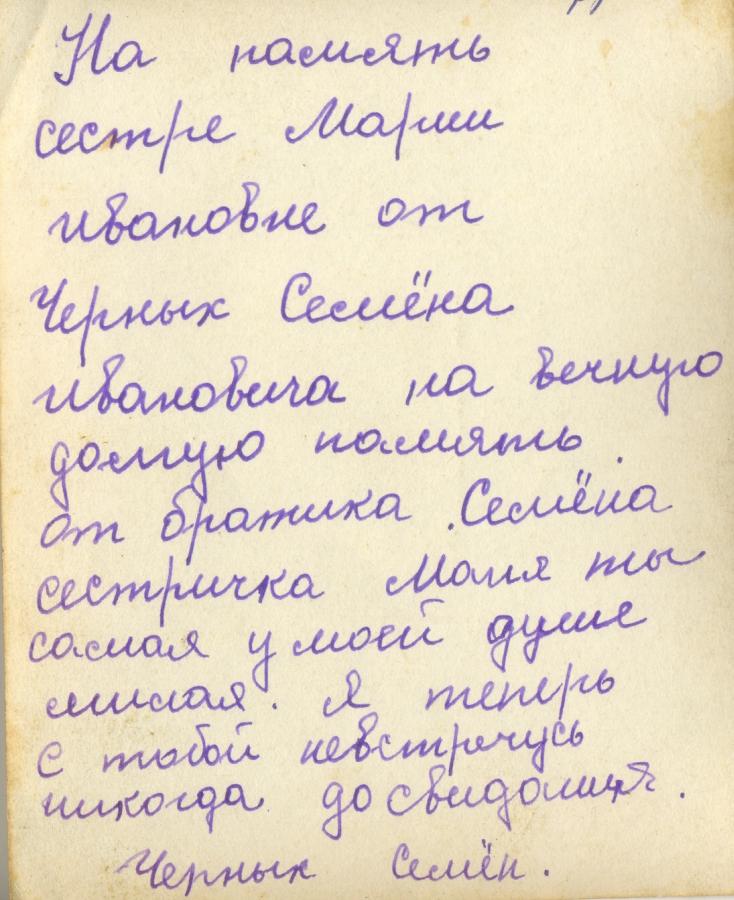 На память
сестре Марии
ивановне от
Черных Семёна
ивановича на вечную
долгую память.
от братика Семёна
сестричка Маня ты
самая у моей душе
милая. Я теперь
с тобой невстречусь
никогда до свидания.
Черных Семён.